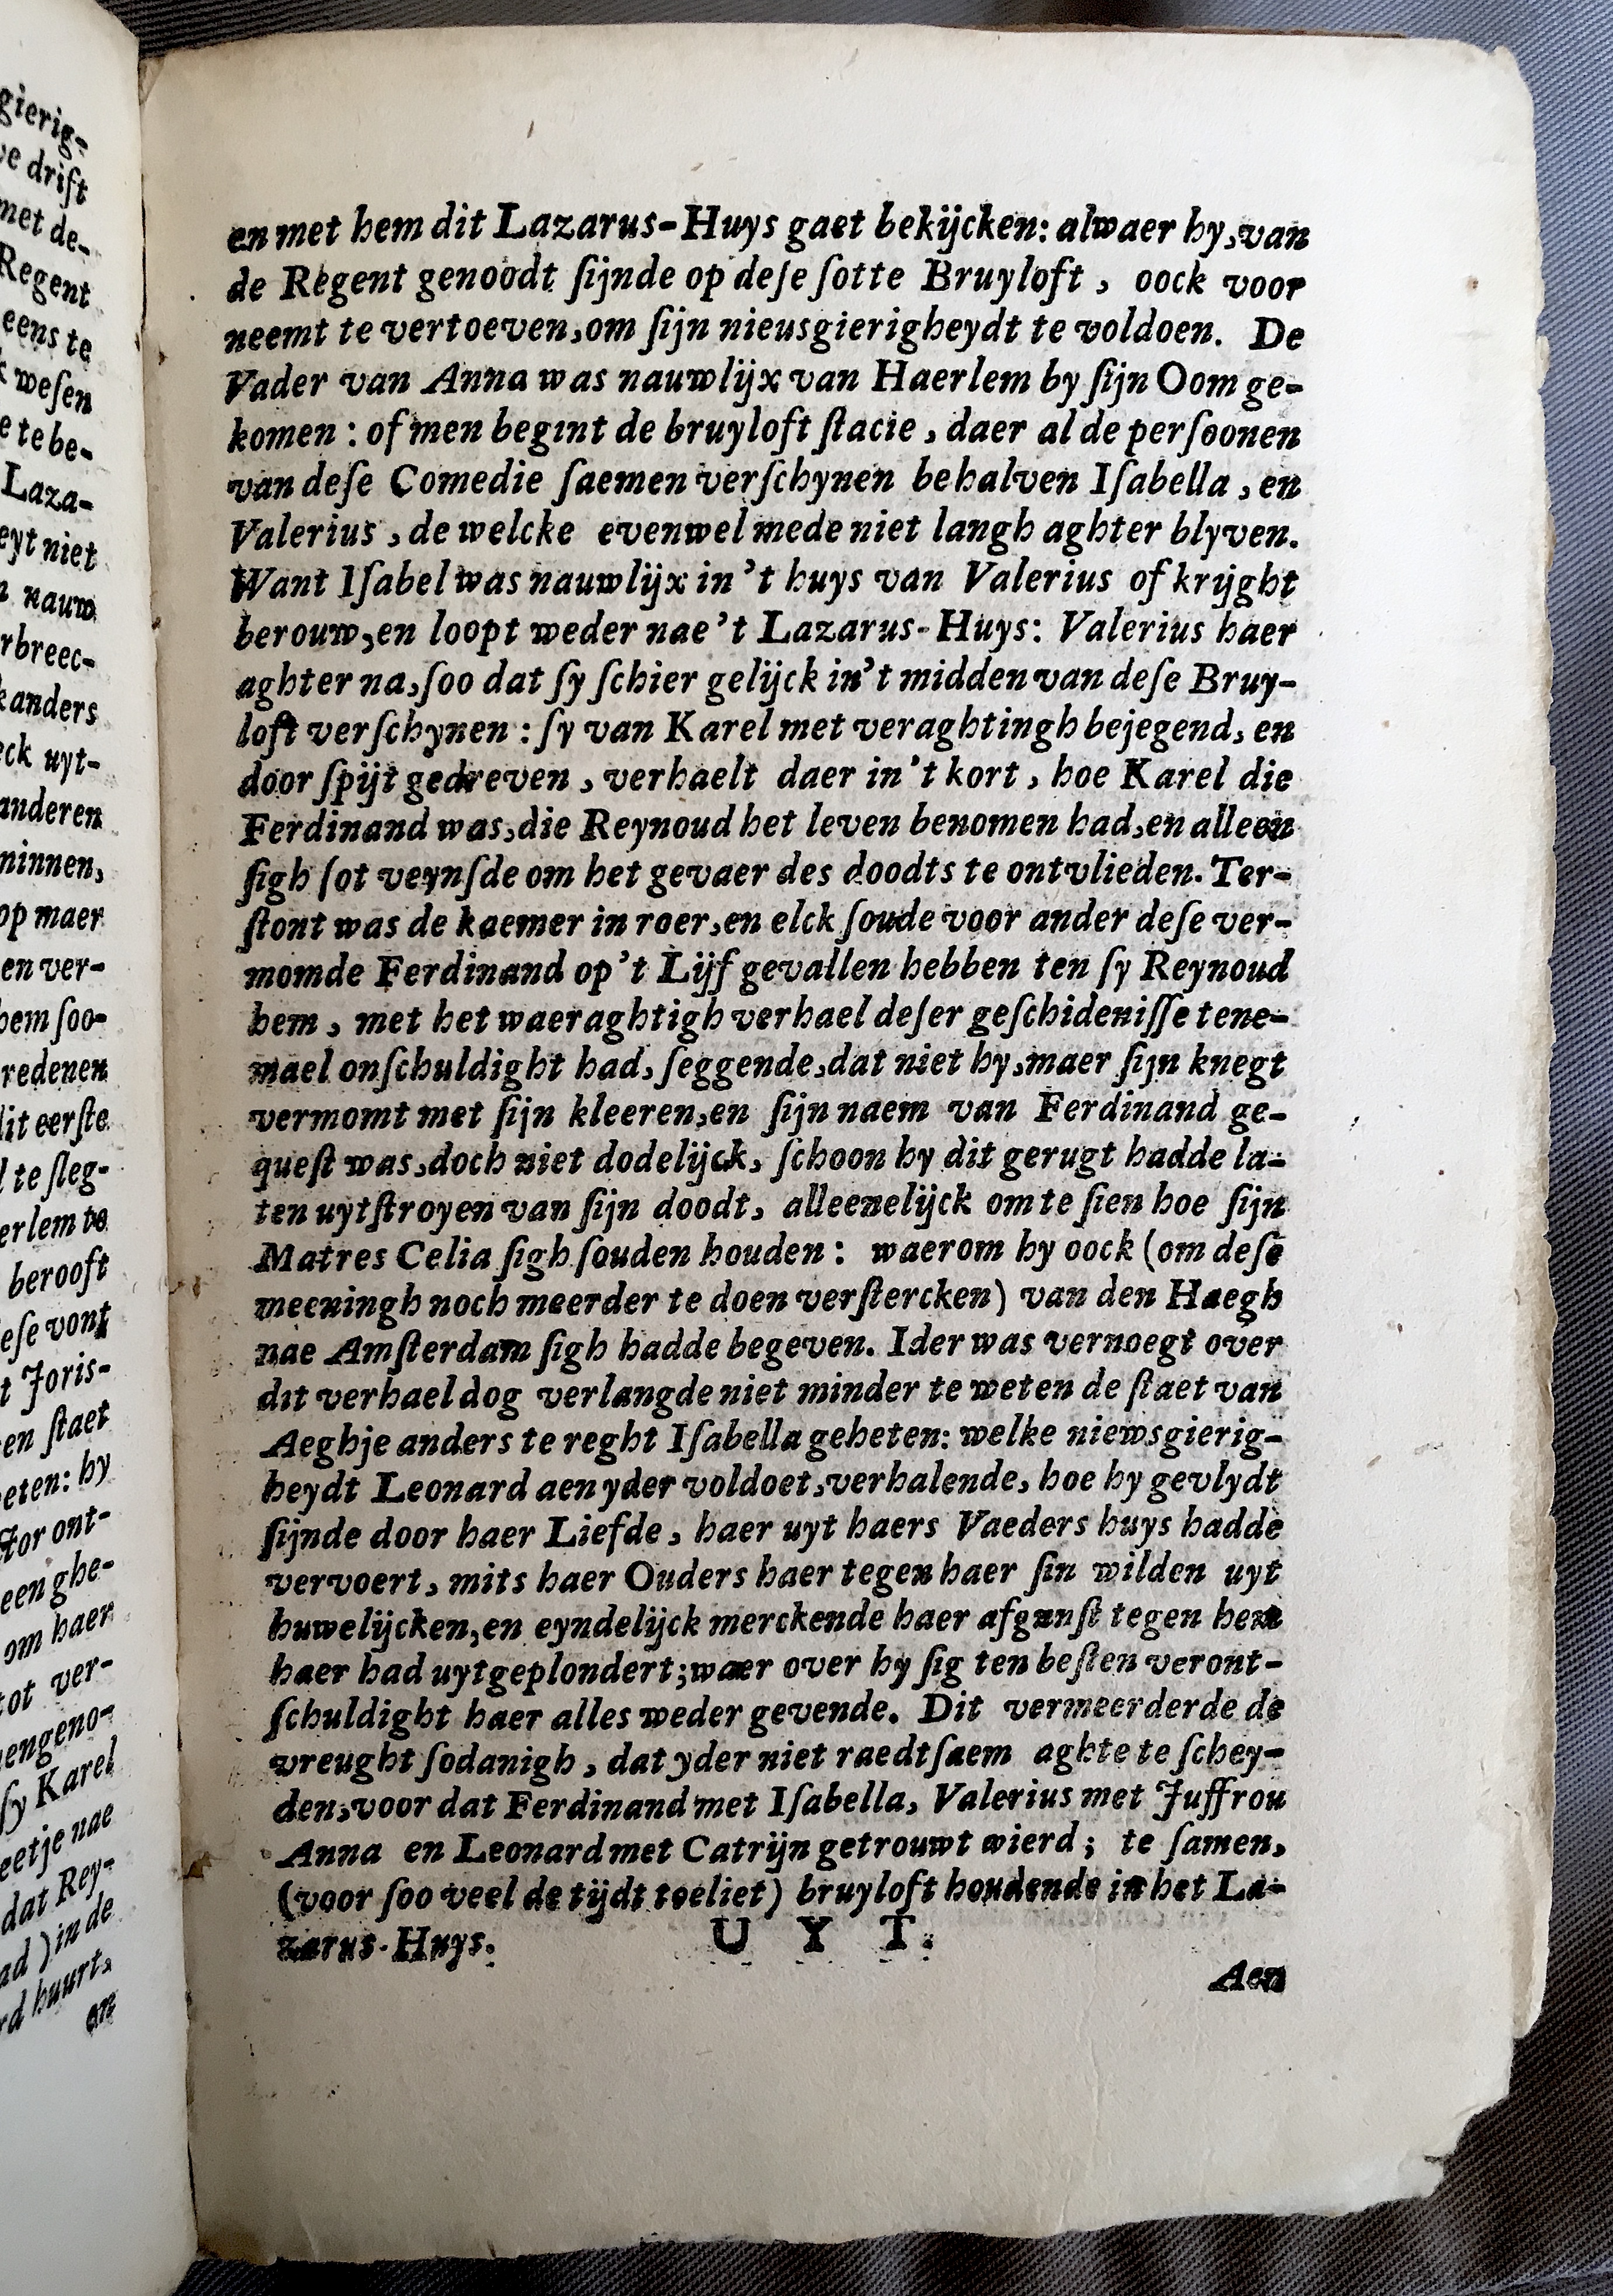 en met hem dit Lazarus-Huys gaet bekijcken: alwaer hy, van
de Regent genoodt ſijnde op deſe ſotte Bruyloft, oock voor
neemt te vertoeven, om ſijn nieusgierigheydt te voldoen. De
Vader van Anna was nauwlijx van Haerlem by ſijn Oom ge-
komen: of men begint de bruyloft ſtacie, daer al de perſoonen
van deſe Comedie ſaemen verſchynen behalven Iſabella, en
Valerius, de welcke evenwel mede niet langh aghter blyven.
Want Iſabel was nauwlijx in 't huys van Valerius of krijght
berouw, en loopt weder nae 't Lazarus-Huys: Valerius haer
aghter na, ſoo dat ſy ſchier gelijck in't midden van deſe Bruy-
loft verſchynen: ſy van Karel met veraghtingh bejegend, en
door ſpijt gedreven, verhaelt daer in't kort, hoe Karel die
Ferdinand was, die Reynoud het leven benomen had, en alleen
ſigh ſot veynſde om het gevaer des doodts te ontvlieden. Ter-
ſtont was de kaemer in roer, en elck ſoude voor ander deſe ver-
momde Ferdinand op't Lijf gevallen hebben ten ſy Reynoud
hem, met het waeraghtigh verhael deſer geſchideniſſe tene-
mael onſchuldight had, ſeggende, dat niet hy, maer ſijn knegt
vermomt met ſijn kleeren, en ſijn naem van Ferdinand ge-
queſt was, doch niet dodelijck, ſchoon hy dit gerugt hadde la-
ten uytſtroyen van ſijn doodt, alleenelijck om te ſien hoe ſijn
Matres Celia ſigh ſouden houden: waerom hy oock (om deſe
meeningh noch meerder te doen verſtercken) van den Haegh
nae Amſterdam ſigh hadde begeven. Ider was vernoegt over
dit verhael dog verlangde niet minder te weten de ſtaet van
Aeghje anders te reght Iſabella geheten: welke niewsgierig-
heydt Leonard aen yder voldoet, verhalende, hoe hy gevlydt
ſijnde door haer Liefde, haer uyt haers Vaeders huys hadde
vervoert, mits haer Ouders haer tegen haer ſin wilden uyt
huwelijcken, en eyndelijck merckende haer afgunſt tegen hem
haer had uytgeplondert; waer over hy ſig ten beſten veront-
ſchuldight haer alles weder gevende. Dit vermeerderde de
vreught ſodanigh, dat yder niet raedtſaem aghte te ſchey-
den, voor dat Ferdinand met Iſabella, Valerius met Juffrou
Anna en Leonard met Catrijn getrouwt wierd; te ſamen,
(voor ſoo veel de tijdt toeliet) bruyloft houdende in het La-
zarus-Huys. U Y T.
Aen
gierig-
ve drift
met de-
Regent
eens te
weſen
e te be-
Laza-
eyt niet
nauw
rbreec-
anders
ck uyt-
anderen
minnen,
op maer
en ver-
hem ſoo-
redenen
dit eerſte
te ſleg-
erlem te
berooft
eſe vont
t Joris-
en ſtaet
eten: hy
tor ont-
een ghe-
om haer
tot ver-
engeno-
ſy Karel
eetje nae
dat Rey-
ad) in de
rd huurt,
en